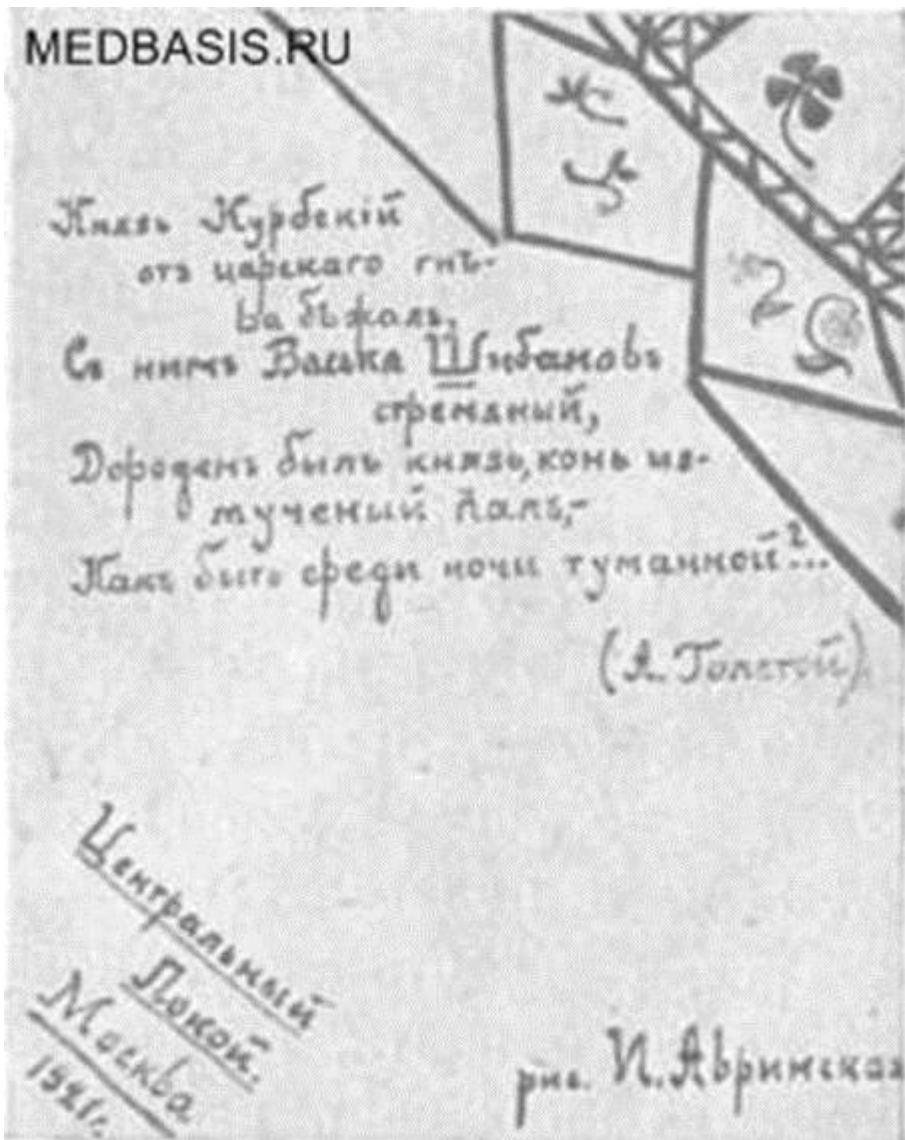 MEDBASIS.RU
Князь Курбскій
отъ царскаго гнѣ-
ва бѣжалъ,
Съ нимъ Васька Шибановъ
стремяный,
Дороденъ былъ князь, конь из-
мученый палъ,-
Какъ быть среди ночи туманной?...
(А. Толстой).
Центральный
Покой.
Москва
1921г.
рис.